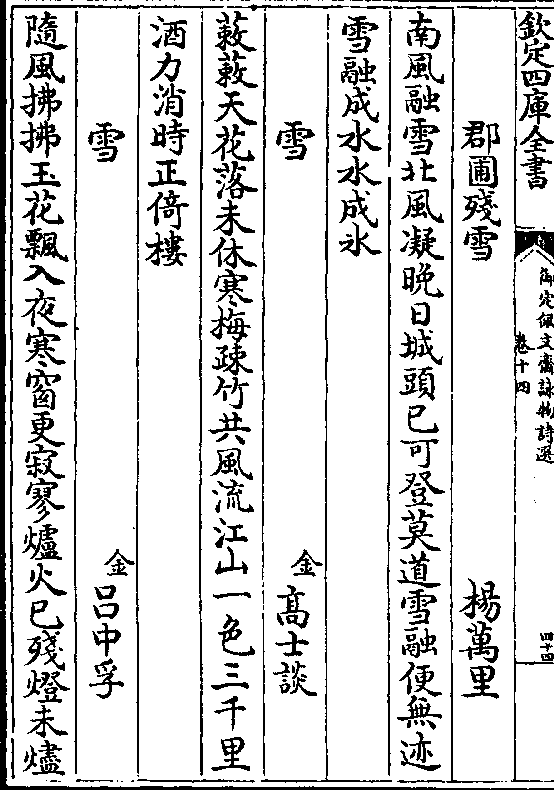 欽定四庫全書
御定佩文齋詠物詩選
卷十四
四十四
郡圃殘雪 楊萬里
南風融雪北風凝晚日城頭已可登莫道雪融便無迹
雪融成水水成冰
雪 金 高士談
蔌蔌天花落未休寒梅疎竹共風流江山一色三千里
酒力消時正倚樓
雪 金 呂中孚
隨風拂拂玉花飄入夜寒窗更寂寥爐火已殘燈未燼